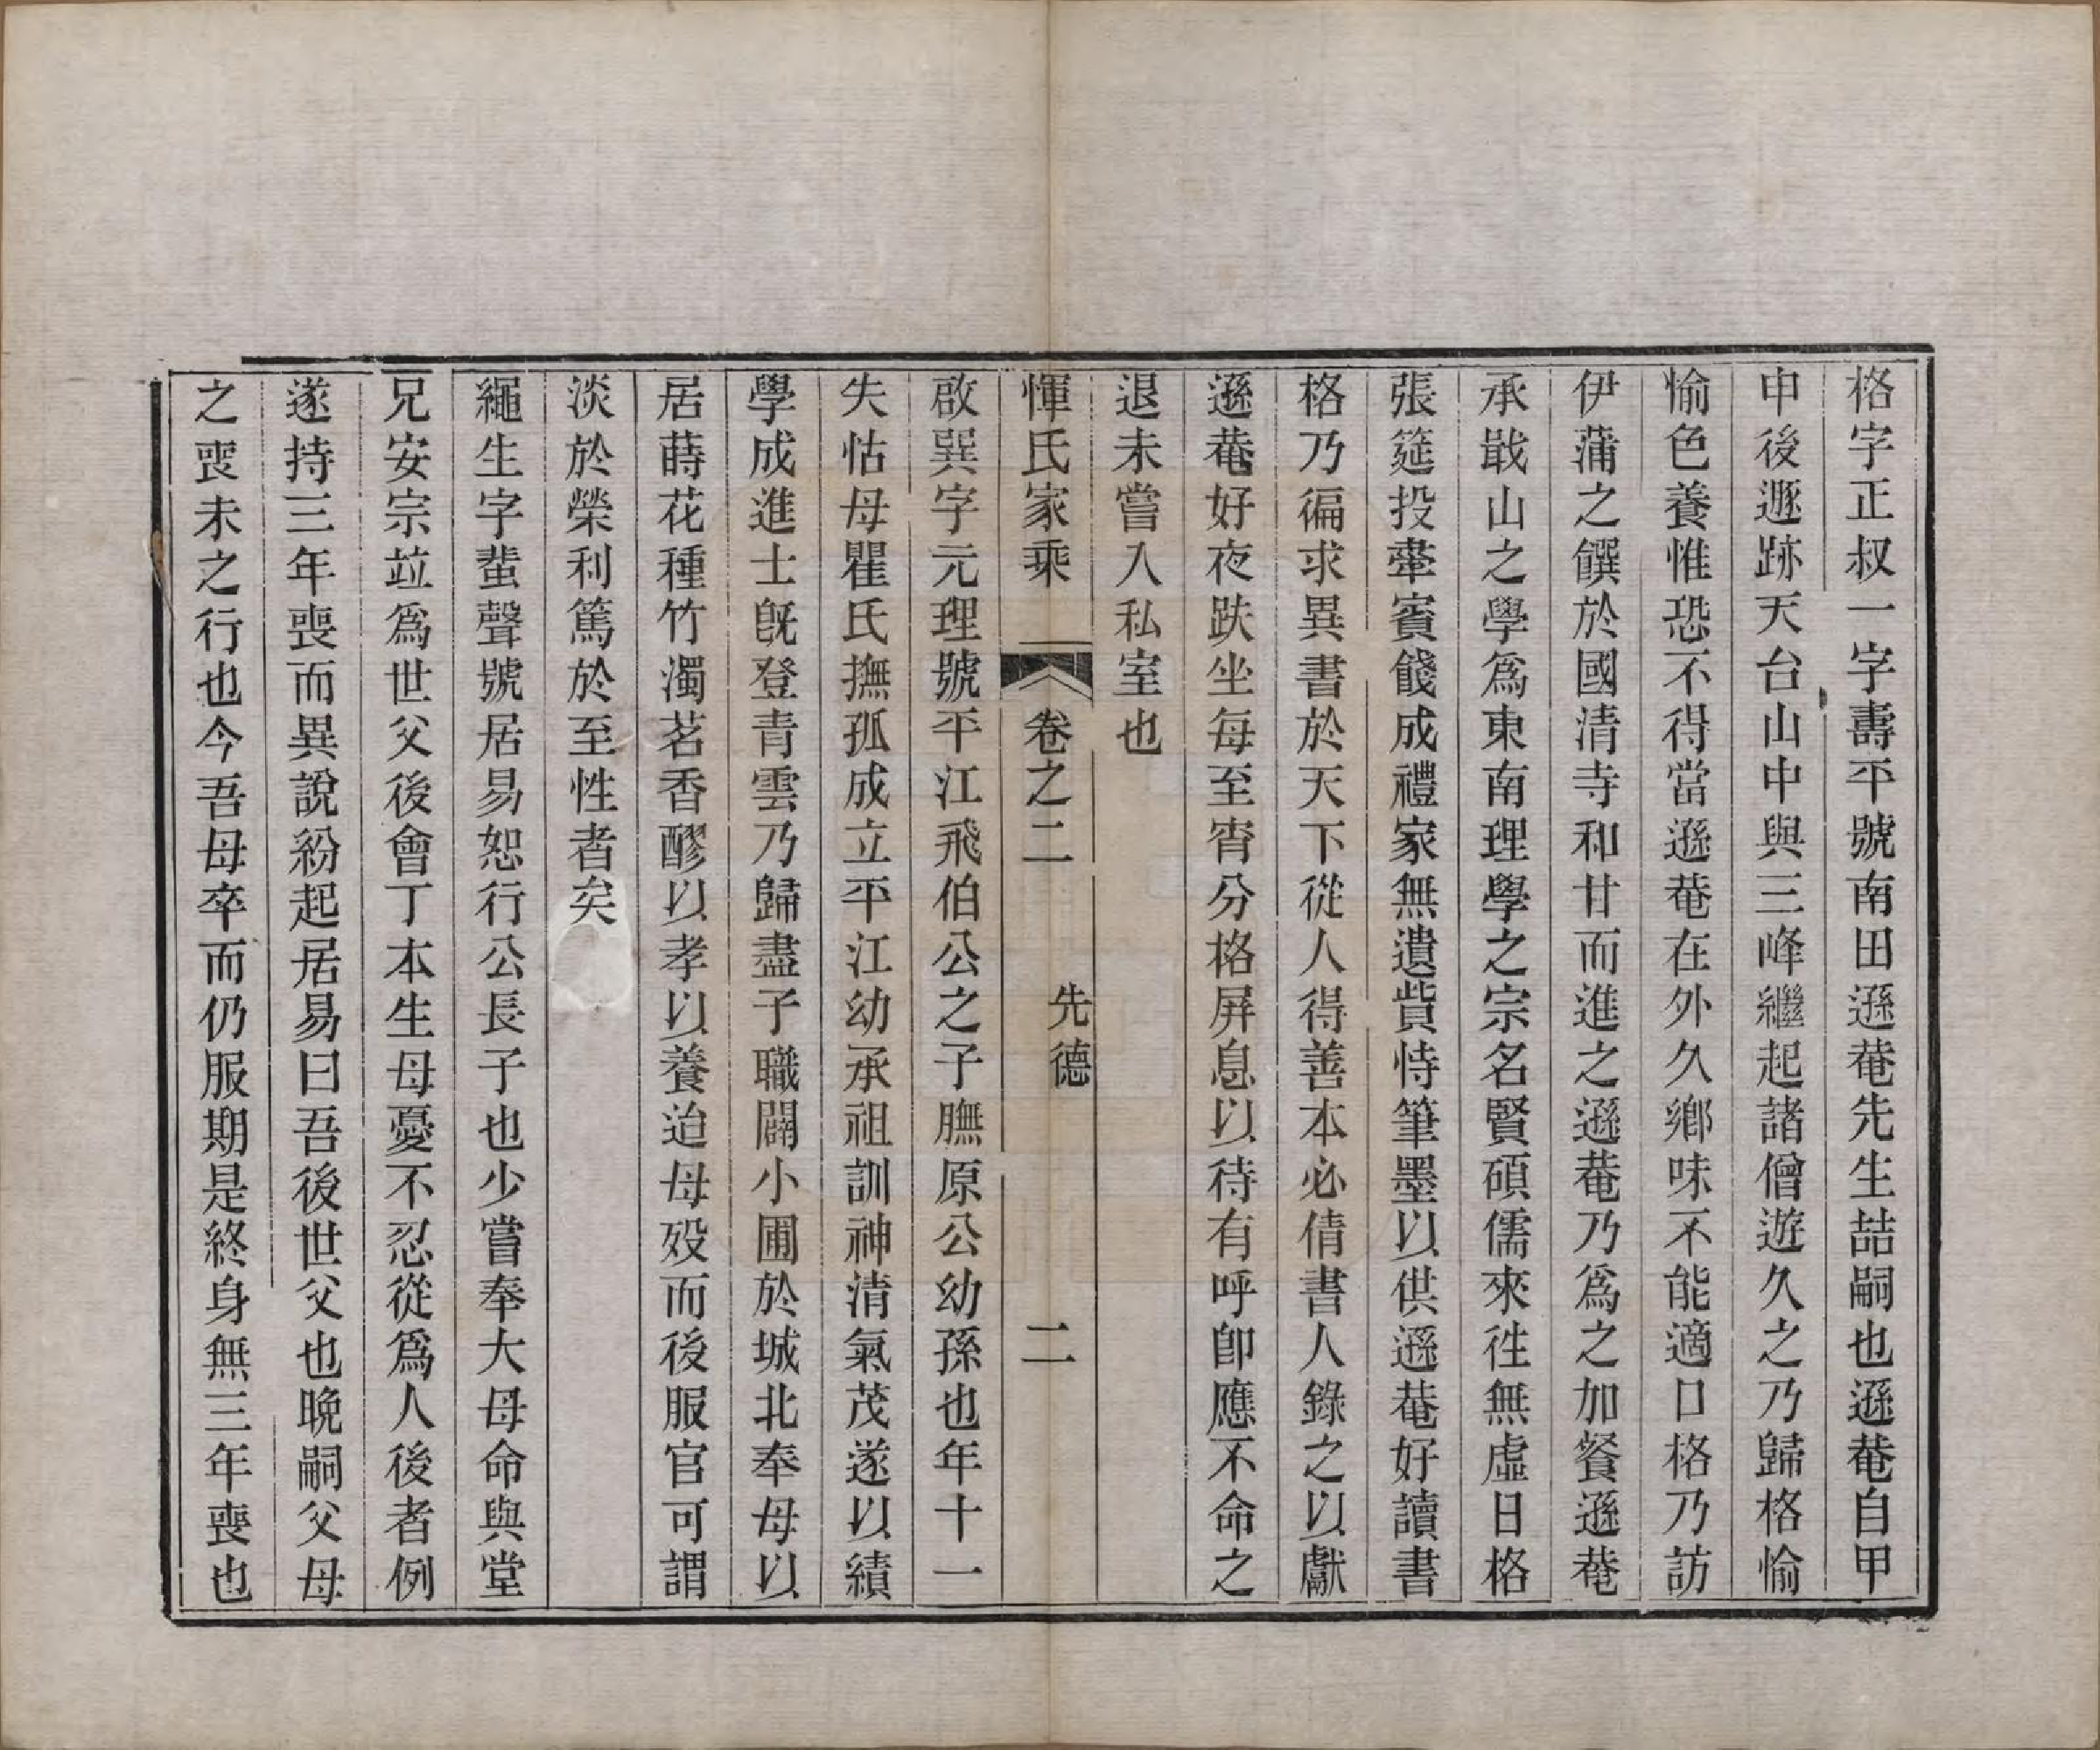 格字正叔一字壽平號南田遜菴先生喆嗣也遜菴自甲
申後遯跡天台山中與三峰繼起諸僧遊久之乃歸格愉
愉色養惟恐不得當遜菴在外久鄉味不能適口格乃訪
伊蒲之饌於國清寺和甘而進之遜菴乃爲之加餐遜菴
承戢山之學爲東南理學之宗名賢碩儒來徃無虛日格
張筵投舝賓餞成禮家無遺貲恃筆墨以供遜菴好讀書
格乃徧求異書於天下從人得善本必倩書人錄之以獻
遜菴好夜趺坐每至宵分格屏息以待有呼卽應不命之
退未嘗入私室也
惲氏家乘 卷之二 先德 二
啟巽字元理號平江飛伯公之子膴原公幼孫也年十一
失怙母瞿氏撫孤成立平江幼承祖訓神清氣茂遂以績
學成進士旣登青雲乃歸盡子職闢小圃於城北奉母以
居蒔花種竹濁茗香醪以孝以養迨母歿而後服官可謂
淡於榮利篤於至性者矣
繩生字蜚聲號居易恕行公長子也少嘗奉大母命與堂
兄安宗竝爲世父後會丁本生母憂不忍從爲人後者例
遂持三年喪而異說紛起居易曰吾後世父也晚嗣父母
之喪未之行也今吾母卒而仍服期是終身無三年喪也